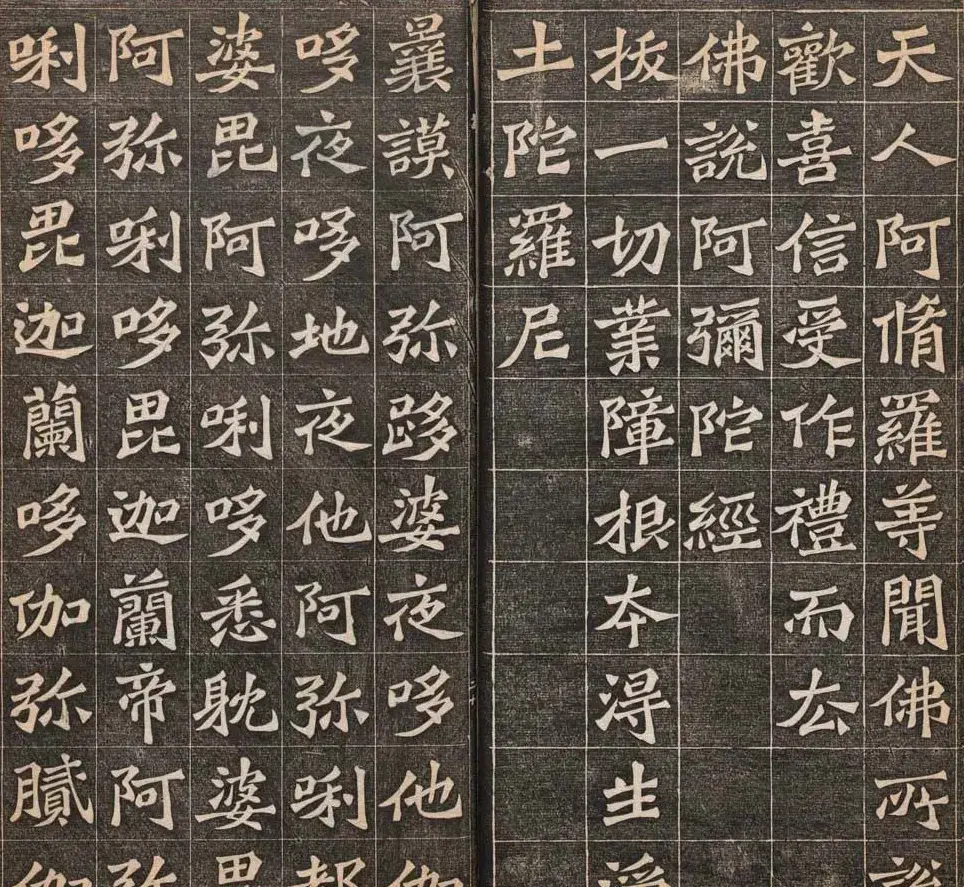 天人阿脩羅䒭聞佛所說
歡喜信受作禮而厺
佛說阿彌陀經
拔一切業障根本淂生淨
土陀羅尼
曩謨阿弥跢婆夜哆他伽
哆夜哆地夜他阿弥唎都
婆毘阿弥唎哆悉耽婆毘
阿弥唎哆毘迦蘭帝阿弥
唎哆毘迦蘭哆伽弥膩伽